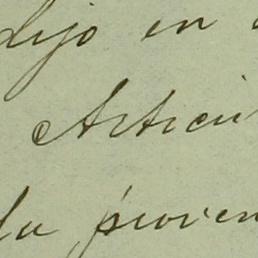 dijo en
Articu
la proven